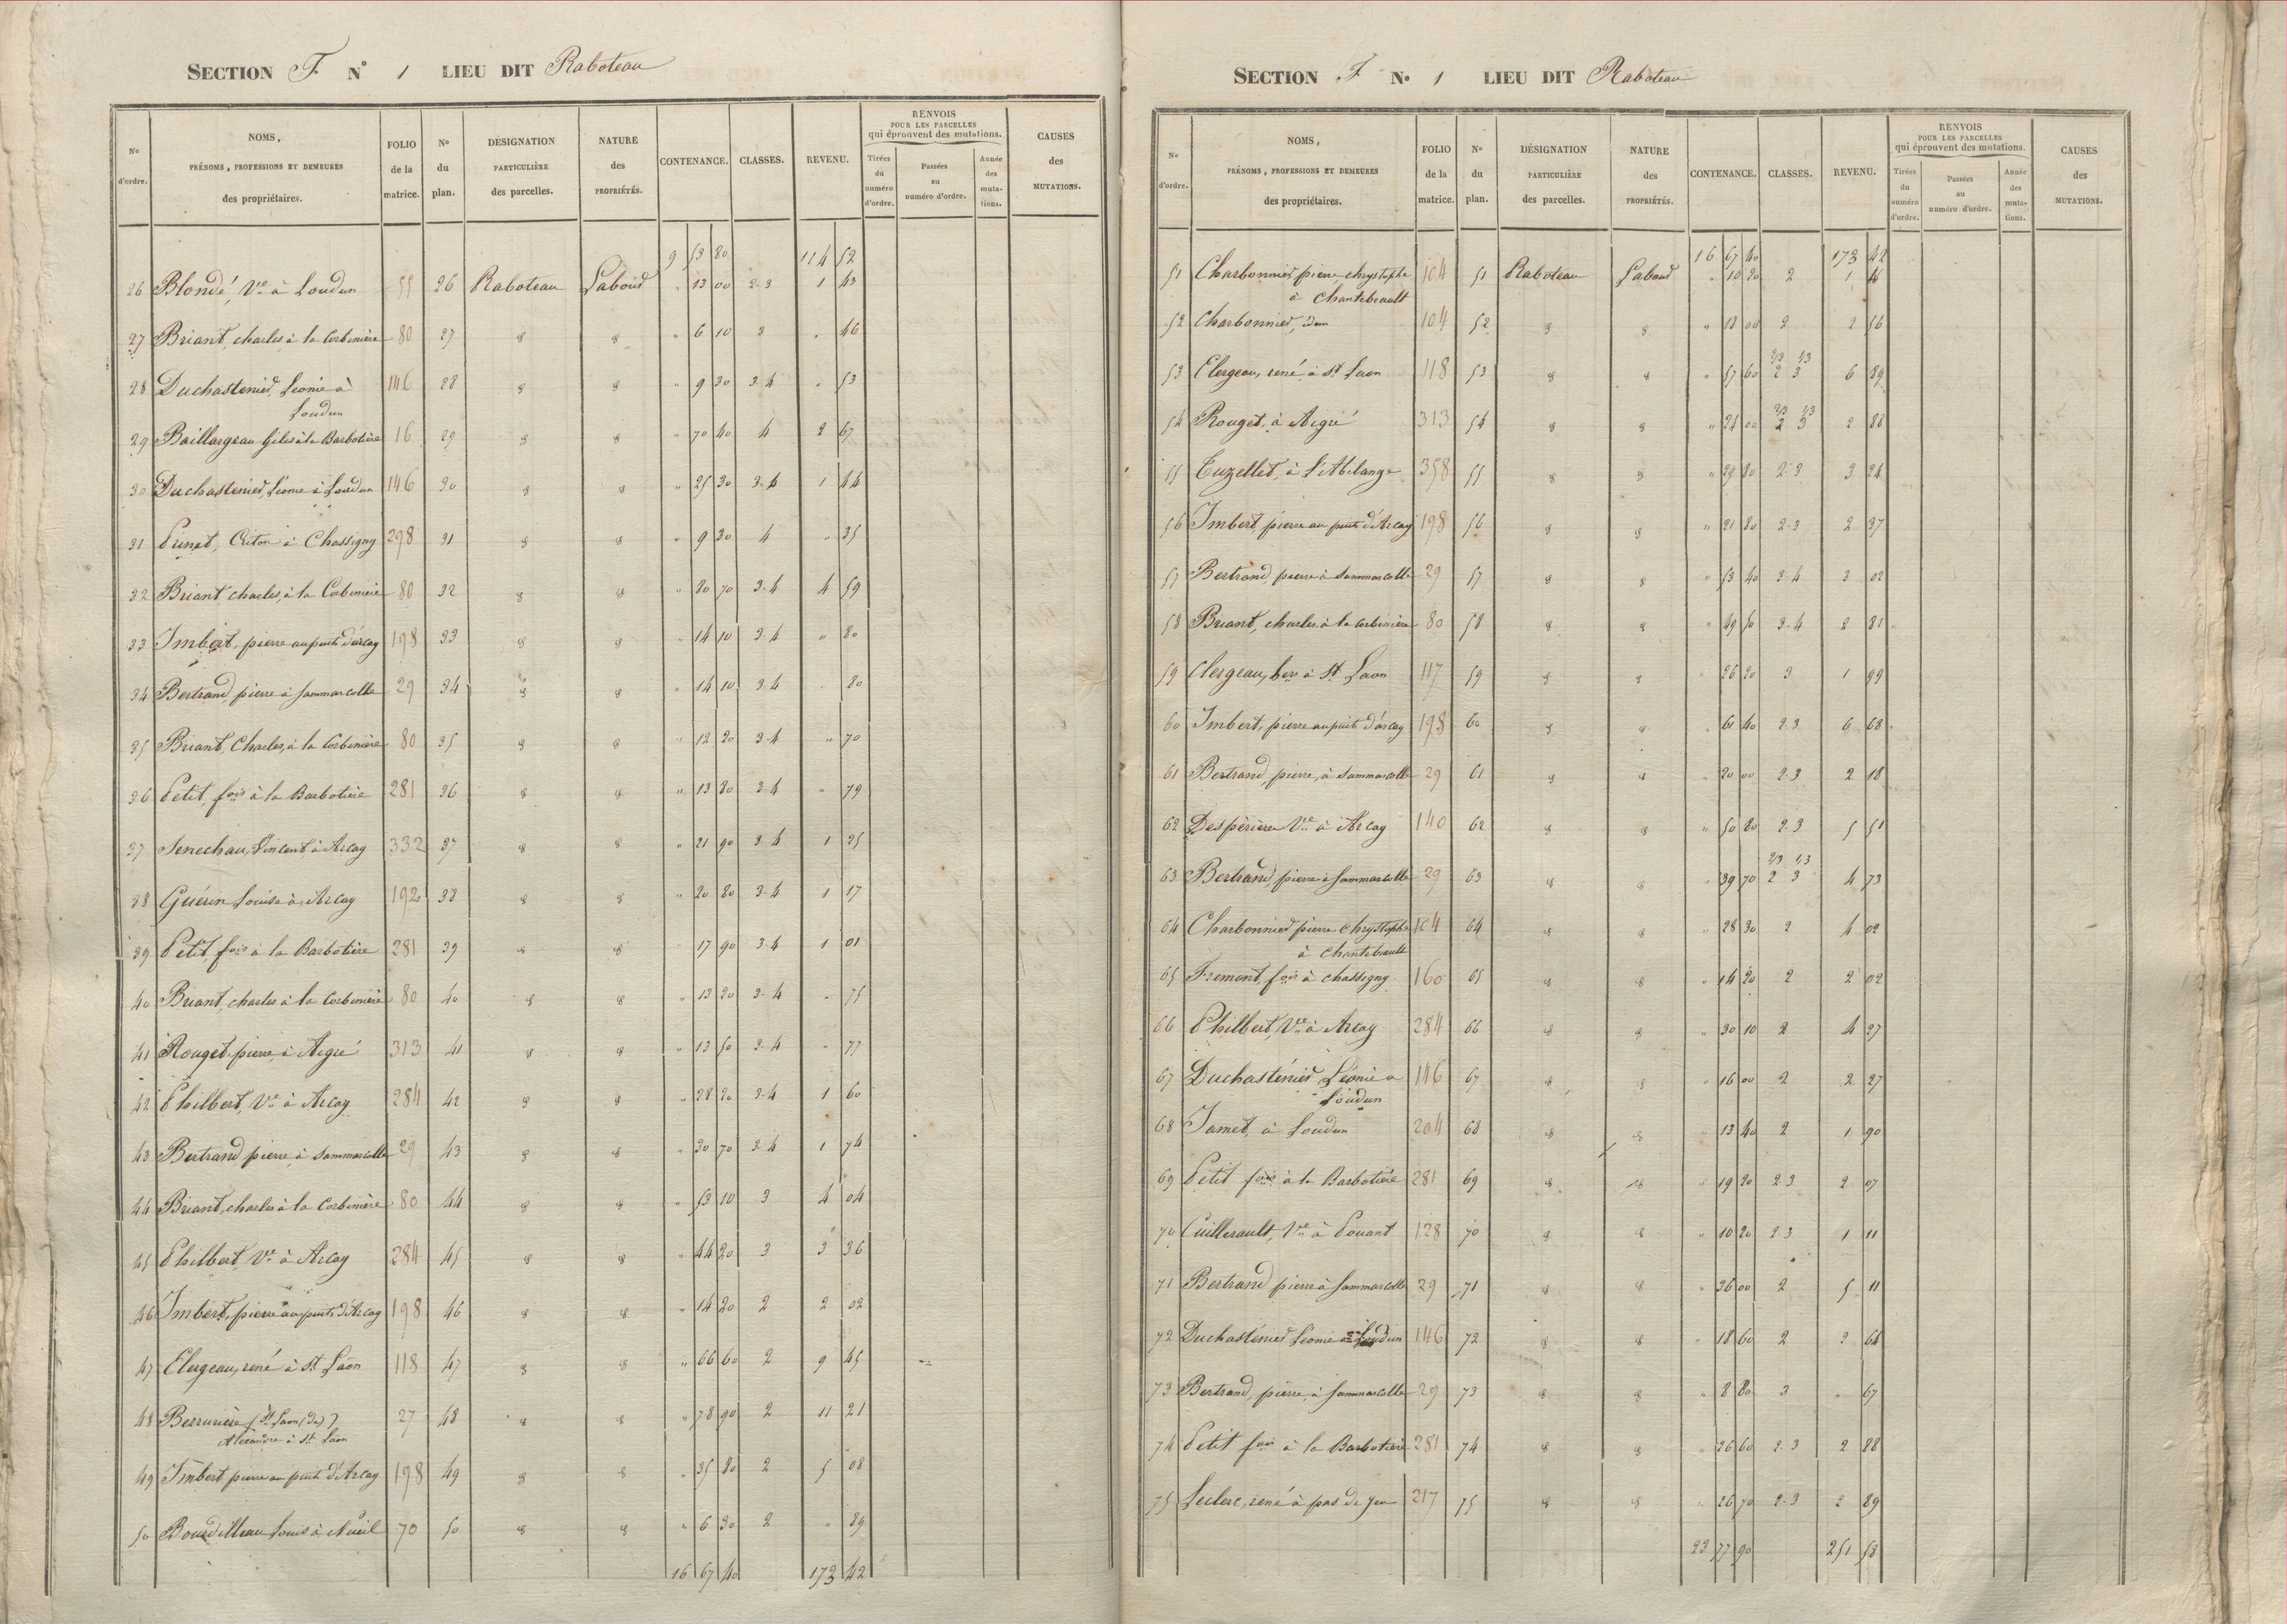 SECTION F N° 1 LIEU DIT Raboteau
N° d'ordre. NOMS, PRÉNOMS, PROFESSIONS ET DEMEURES des propriétaires. FOLIO de la matrice. N° du plan. DÉSIGNATION PARTICULIÈRE des parcelles. NATURE des PROPRIÉTÉS. CONTENANCE. CLASSES. REVENU. RENVOIS POUR LES PARCELLES qui éprouvent des mutations. Tirées du numéro d'ordre. Passées au numéro d'ordre. Année des mutations. CAUSES des MUTATIONS.
9 53 80 114 52
26 Blondé, Ve à Loudun 55 26 Raboteau Labour " 13 00 2-3 1 43
27 Briant, charles, à la Corbinière 80 27 " 6 10 3 " 46
28 Duchastenier, Léonie à 146 28 " 9 30 3-4 " 53
Loudun
29 Baillargeau Giles à la Barbotière 16 29 " 70 40 4 2 67
30 Duchastenier, Léonie à Loudun 146 30 " 25 30 3-4 1 44
31 à Chassigny 298 31 " 9 30 4 " 35
32 Briant, charles, à la Corbinière 80 32 " 80 70 3-4 4 59
33 Imbert, pierre au puits d'arcay 198 33 " 14 10 3-4 " 80
34 Bertrand, pierre à Sammarcolle 29 34 " 14 10 3-4 " 80
35 Briant, Charles, à la Corbinière 80 35 " 12 30 3-4 " 70
36 Petit, fois à la Barbotière 281 36 " 13 80 3-4 " 79
37 Senechau, Vincent à Arcay 332 37 " 21 90 3-4 1 25
38 Guérin Louise à Arcay 192 38 " 20 80 3-4 1 17
39 Petit, fois à la Barbotière 281 39 " 17 90 3-4 1 01
40 Briant, charles à la Corbinière 80 40 " 13 20 3-4 " 75
41 Rouget, pierre, à Aigré 313 41 " 13 50 3-4 " 77
42 Philbert, Ve à Arcay 284 42 " 28 20 3-4 1 60
43 Bertrand pierre à Sammarcolle 29 43 " 30 70 3-4 1 74
44 Briant, charles à la Corbinière 80 44 " 53 10 3 4 04
45 Philbert, Ve à Arcay 284 45 " 44 20 3 3 36
46 Imbert, pierre au puits d'Arcay 198 46 " 14 20 2 2 02
47 Clergeau, rené à St Laon 118 47 " 66 60 2 9 45
48 Berrurière (St Laon (De)) 27 48 " 78 90 2 11 21
Alexandre à St Laon
49 Imbert, pierre au puits d'Arcay 198 49 " 35 80 2 5 08
50 Bourdilleau Louis à Nueil 70 50 " 6 30 2 " 89
16 67 40 173 42
SECTION F N° 1 LIEU DIT Raboteau
N° d'ordre. NOMS, PRÉNOMS, PROFESSIONS ET DEMEURES des propriétaires. FOLIO de la matrice. N° du plan. DÉSIGNATION PARTICULIÈRE des parcelles. NATURE des PROPRIÉTÉS. CONTENANCE. CLASSES. REVENU. RENVOIS POUR LES PARCELLES qui éprouvent des mutations. Tirées du numéro d'ordre. Passées au numéro d'ordre. Année des mutations. CAUSES des MUTATIONS.
16 67 40 173 42
51 Charbonnier pierre chrystophe 104 51 Raboteau Labour " 10 30 2 1 46
à Chantebrault
52 Charbonnier, idem 104 52 " 18 00 2 2 56
53 Clergeau, rené à St Laon 118 53 " 57 60 2/3 2 1/3 3 6 89
54 Rouget, à Aigré 313 54 " 24 00 2/3 2 1/3 3 2 88
55 Tuzellet, à 358 55 " 29 80 2-3 3 24
56 Imbert, pierre au puits d'Arcay 198 56 " 21 80 2-3 2 37
57 Bertrand, pierre à Sammarcolle 29 57 " 53 40 3-4 3 02
58 Briant, charles, à la Corbinière 80 58 " 49 50 3-4 2 81
59 Clergeau, hers à St Laon 117 59 " 26 20 3 1 99
60 Imbert, pierre au puits d'arcay 198 60 " 61 40 2-3 6 68
61 Bertrand, pierre, à Sammarcolle 29 61 " 20 00 2-3 2 18
62 Despérières Vve à Arcay 140 62 " 50 80 2-3 5 51
63 Bertrand, pierre à Sammarcolle 29 63 " 39 70 2/3 2 1/3 3 4 73
64 Charbonnier pierre chrystophe 104 64 " 28 30 2 4 02
à Chantebrault
65 Fremont, fois à chassigny 160 65 " 14 20 2 2 02
66 Philbert, Vve à Arcay 284 66 " 30 10 2 4 27
67 Duchasténier Léonie à 146 67 " 16 00 2 2 27
Loudun
68 Jamet, à Loudun 204 68 " 13 40 2 1 90
69 Petit fois à la Barbotière 281 69 " 19 20 2-3 2 07
70 Cuillerault, Vve à Pouant 128 70 " 10 20 2-3 1 11
71 Bertrand, pierre à Sammarcolle 29 71 " 36 00 2 5 11
72 Duchasténier Léonie à Loudun 146 72 " 18 60 2 2 64
73 Bertrand, pierre, à Sammarcolle 29 73 " 8 80 3 " 67
74 Petit fois à la Barbotière 281 74 " 26 60 2-3 2 88
75 Leclerc, rené à pas de jeu 217 75 " 26 70 2-3 2 89
23 77 90 251 53